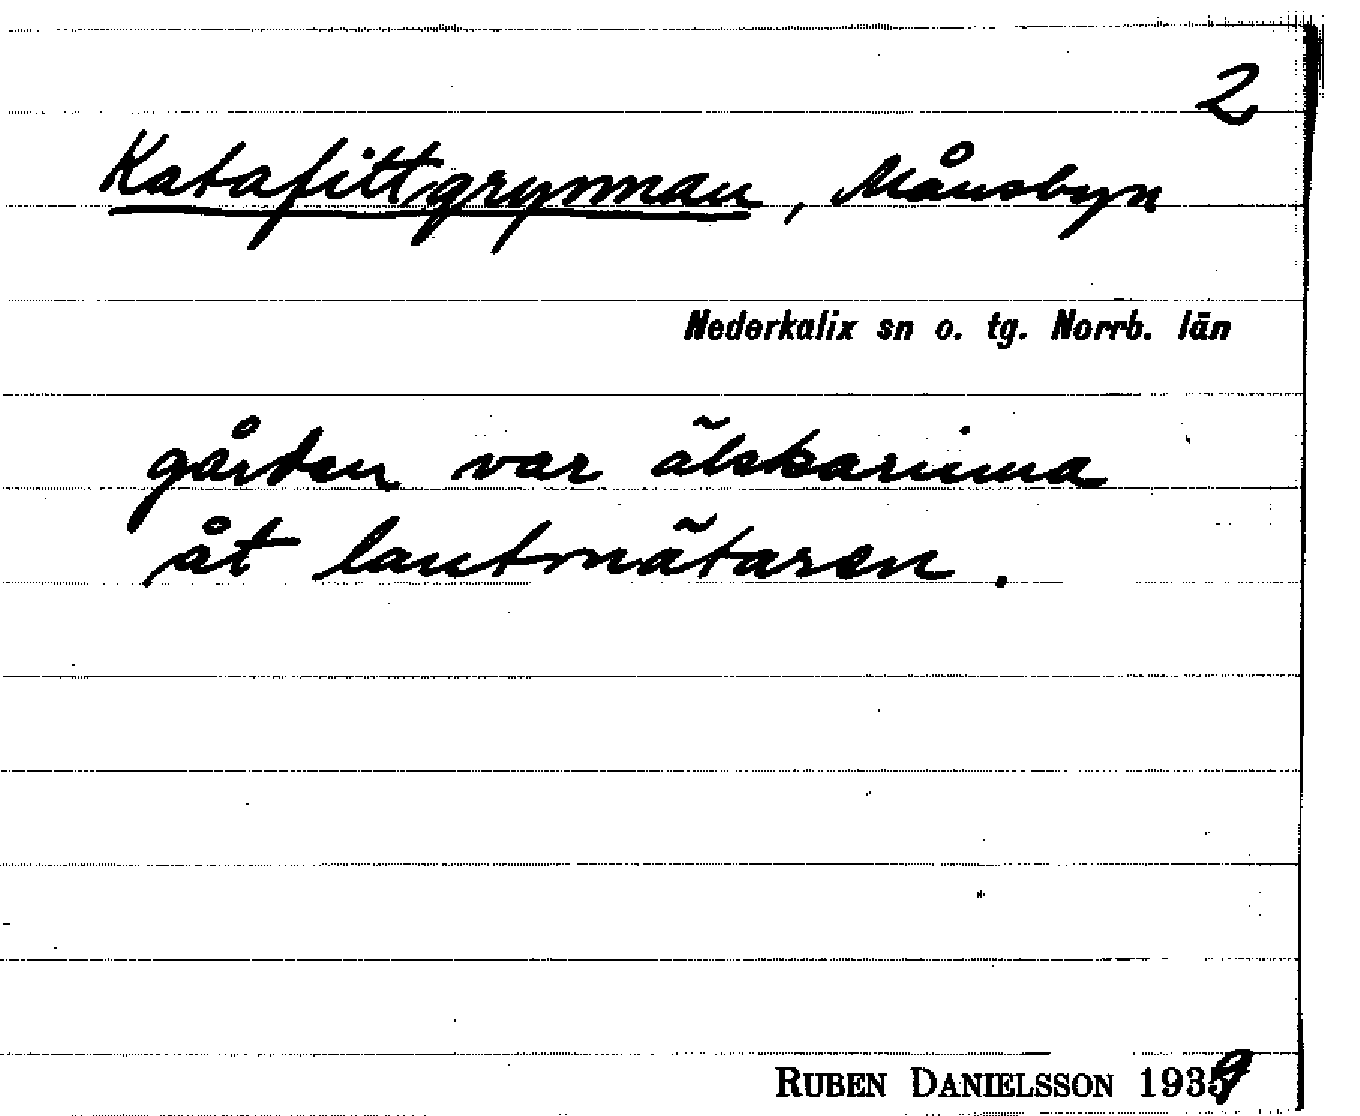 2
Katafittgrynnan, Månsbyn
Nederkalix sn o. tg. Norrb. län
gården var älskarinna
åt lantmätaren.
RUBEN DANIELSSON 1939